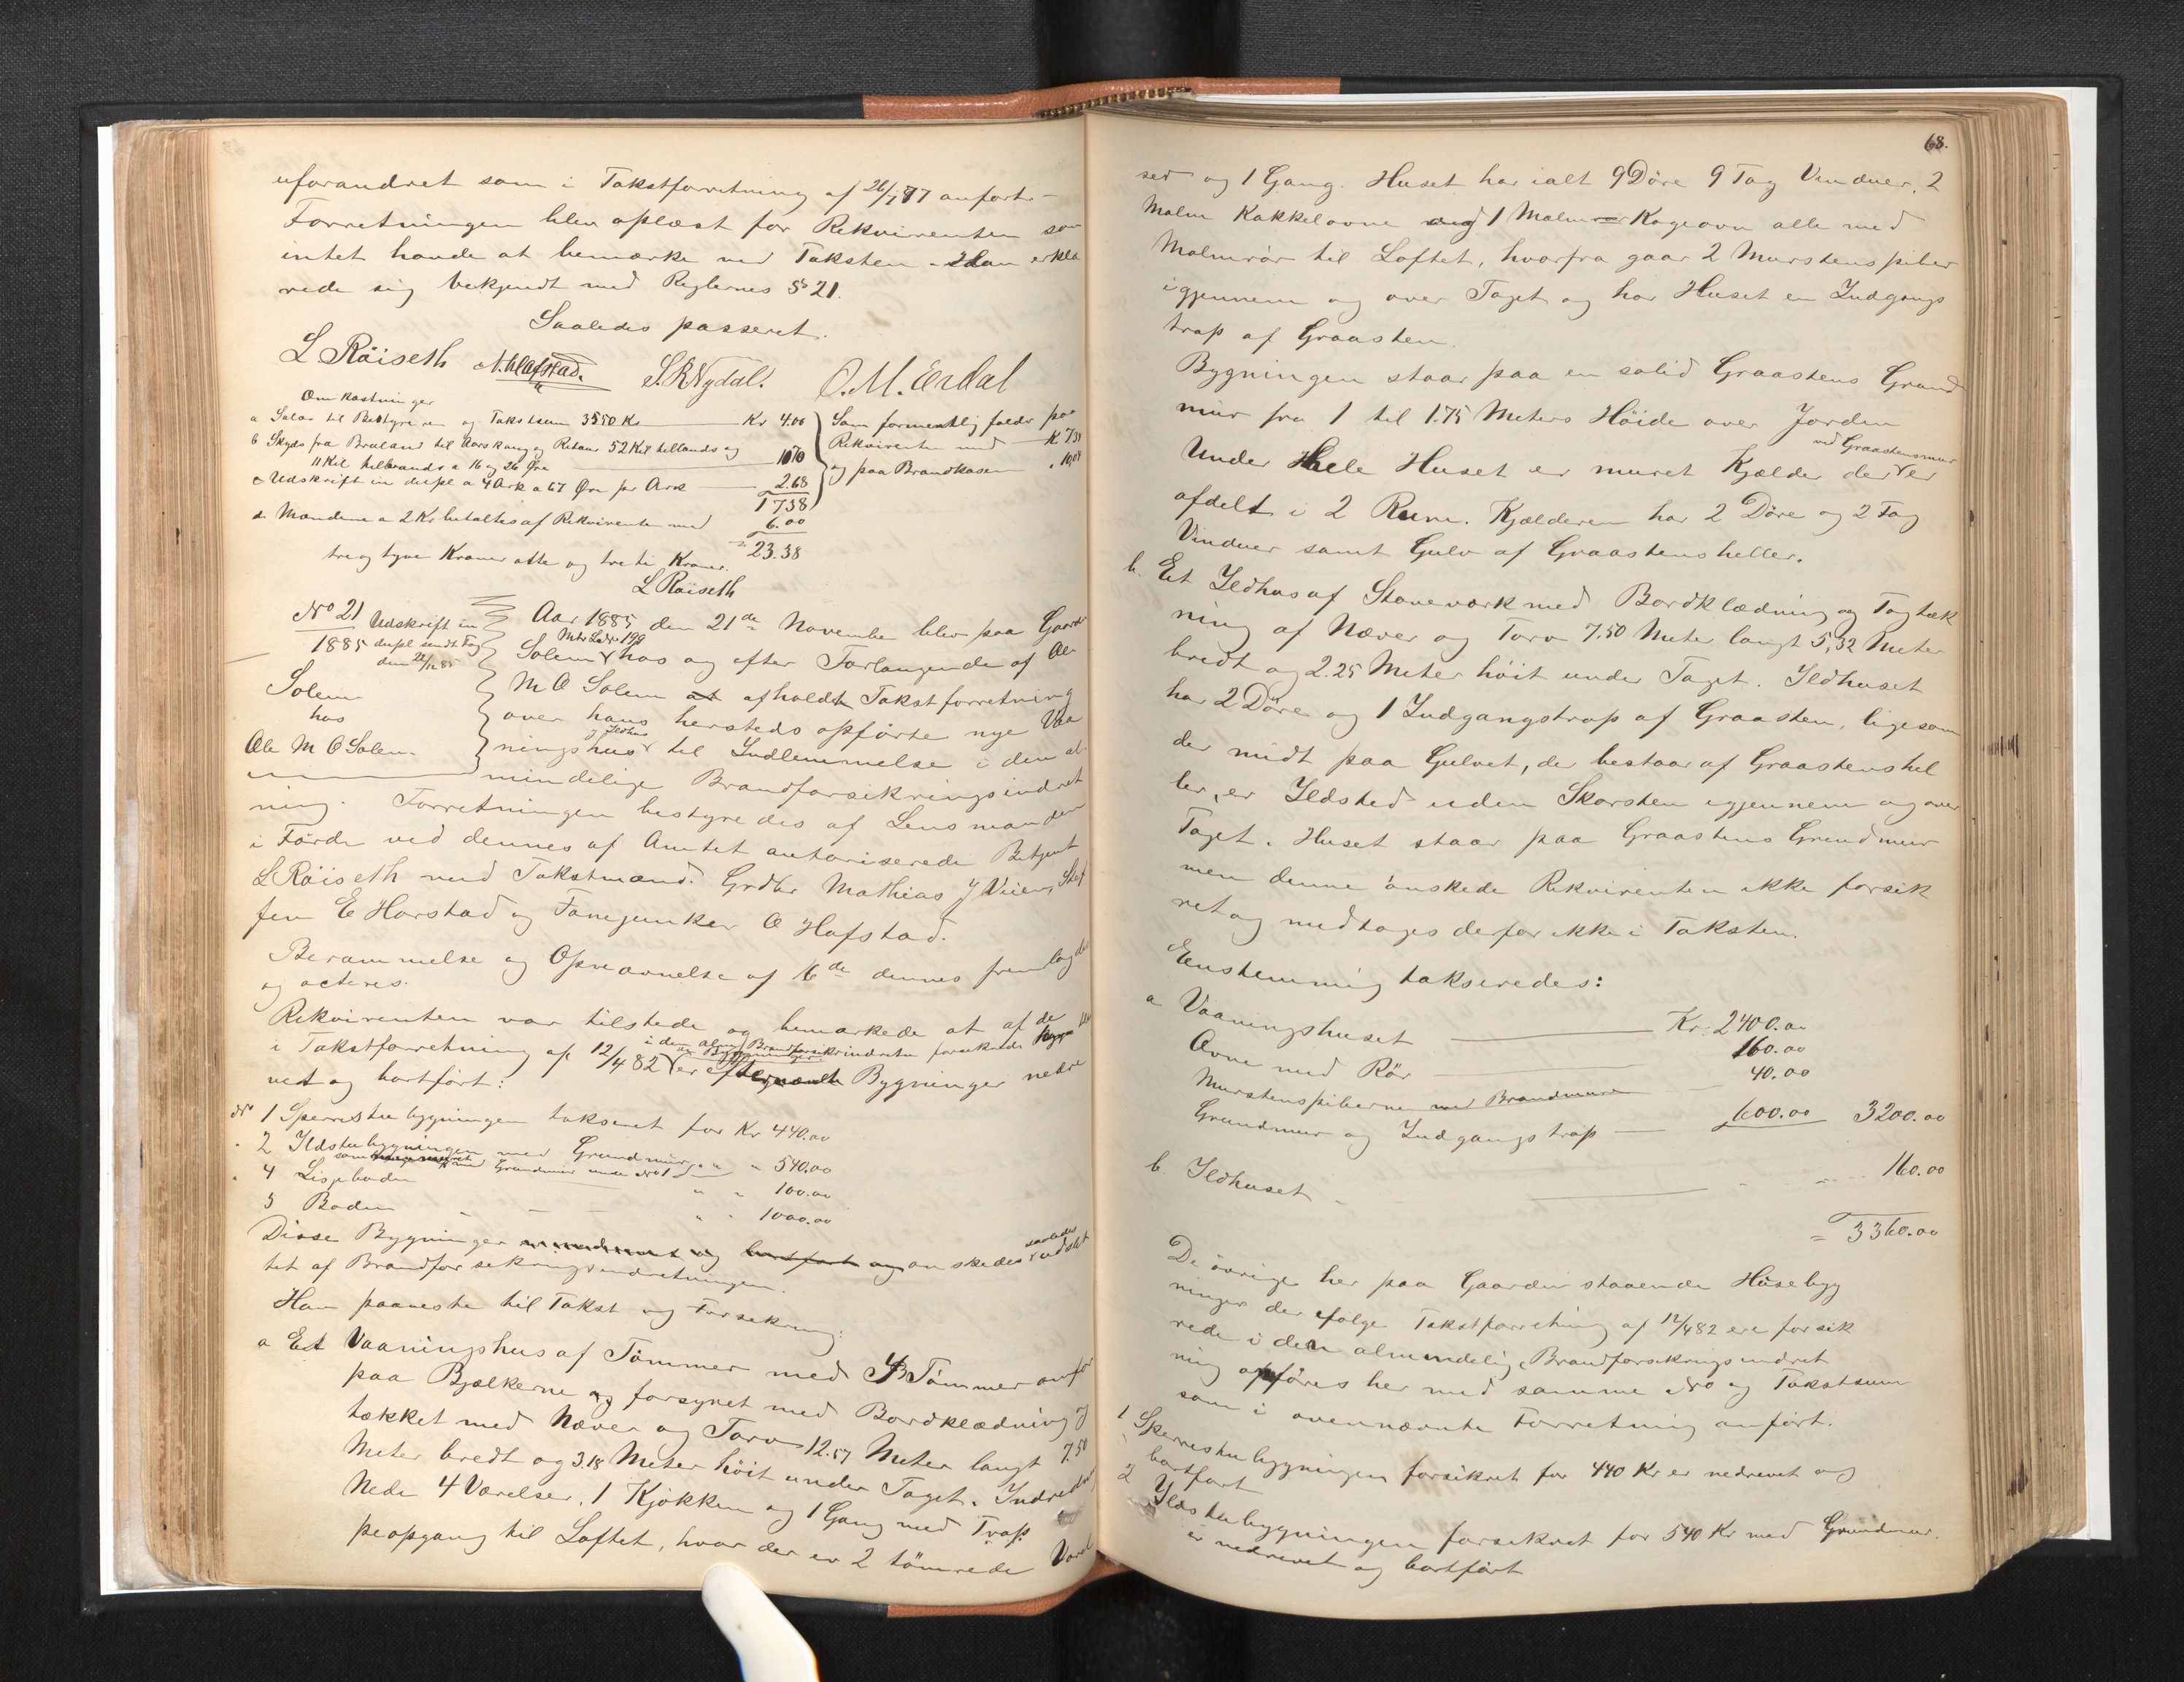 uforandret som i Takstforretning af 26/7 77 anført.-
Forretningen blev oplæst for Rekvirenten som
intet havde at bemærke ved Taksten. Han erklæ
rede sig bekjendt med Reglernes § 21.
Saaledes passeret.
L Röiseth N. Hafstad. S. R Nydal. O. M. Erdal
Omkostninger
a Salar til Bestyreren og Takstsum 3550 Kr Kr 4.00
b Skyds fra Bruland til Aarskaug og Retour 52 Kil tillands og
11 Kil tilvands a 16 og 26 Øre 10.70
c Udskrift in dupl a 4 Ark a 67 Øre pr Ark 2.68
17.38
d Mændene a 2 Kr betaltes af Rekvirenten med 6.00
= 23.38
Som formentlig falder paa
Rekvirenten med K 7.34
og paa Brandkassen " 10,04
tre og tyve Kroner otte og treti Kroner.
L Röiseth
No 21
1885
Udskrift in
dupl sendt Fog
den 22/12 85
Solem
hos
Ole M O Solem
Aar 1885 den 21de November blev paa Gaard
Solem Mtr Lnr 199 hos og efter Forlangende af Ole
M O Solem at afholdt Takstforretning
over hans hersteds opförte nye Vaa
ningshus og Ildhus til Indlemmelse i den al
mindelige Brandforsikringsindret
ning. Forretningen bestyredes af Lensmanden
i Förde ved dennes af Amtet autoriserede Betjent
L Röiseth med Takstmænd: Grdbr Mathias J Vieng, Stef
fen E Harstad og Fanejunker O Hafstad.
Berammelse og Opnævnelse af 16de dennes fremlagdes
og acteres.
Rekvirenten var tilstede og bemærkede at af de
i Takstforretning af 12/4 82 i den alm Brandforsikrindretn forsikrede Bygn
er efternævnte Bygninger nedre
vet og bortfört:
No 1 Sperrestubygningen takseret for Kr 440.00
" 2 Ildstubygningen med Grundmur " " 540.00
som med Grundmur under No 1
" 4 Lisjebuden " " 100.00
5 Boden " " 1000.00
Disse Bygninger og bortfört og ønskedes saaledes udslet
tet af Brandforsekringsindretningen.
Han paaviste til Takst og Forsekring:
a Et Vaaningshus af Tömmer med Tömmer
paa Bjælkerne og forsynet med Bordklædning og
tækket med Næver og Torv 12.57 Meter langt 7.50
Meter bredt og 3.18 Meter höit under Taget. Indredet
Nede 4 Værelser, 1 Kjökken og 1 Gang med Trap
peopgang til Loftet, hvor der er 2 tömrede Værel
68.
ser og 1 Gang. Huset har ialt 9 Döre 9 Fag Vinduer, 2
Malm Kakkelovne og 1 Malm Kogeovn alle med
Malmrör til Loftet, hvorfra gaar 2 Murstenspiber
igjennem og over Taget og har Huset en Indgangs
trap af Graasten.
Bygningen staar paa en solid Graastens Grund
mur fra 1 til 1.75 Meters Höide over Jorden
Under Hele Huset er muret Kjælder der ved Graastensmur er
afdelt i 2 Rum. Kjælderen har 2 Döre og 2 Fag
Vinduer samt Gulv af Graastensheller.
b. Et Ildhus af Staveværk med Bordklædning og Tagtæk
ning af Næver og Torv 7.50 Meter langt 5,32 Meter
bredt og 2.25 Meter höit under Taget. Ildhuset
har 2 Döre og 1 Indgangstrap af Graasten, ligesom
der midt paa Gulvet, der bestaar af Graastenshel
ler, er Ildsted uden Skorsten igjennem og over
Taget. Huset staar paa Graastens Grundmur
men denne önskede Rekvirenten ikke forsik
ret og medtages derfor ikke i Taksten.
Eenstemmig takseredes:
a Vaaningshuset Kr. 2400.00
Ovne med Rör 160.00
Murstenspiberne med Brandmure 40.00
Grundmur og Indgangstrap 600.00 3200.00
b. Ildhuset 160.00
= 3360.00
De övrige her paa Gaarden staaende Husebyg
ninger der ifölge Takstforretning af 12/4 82 ere forsik
rede i den almindelige Brandforsekringsindret
ning opföres her med samme No og Takstsum
som i ovennævnte Forretning anfört.
1 Sperrestubygningen forsikret for 440 Kr er nedrevet og
bortfört
2 Ildstubygningen forsekret for 540 Kr med Grundmur.
er nedrevet og bortfört